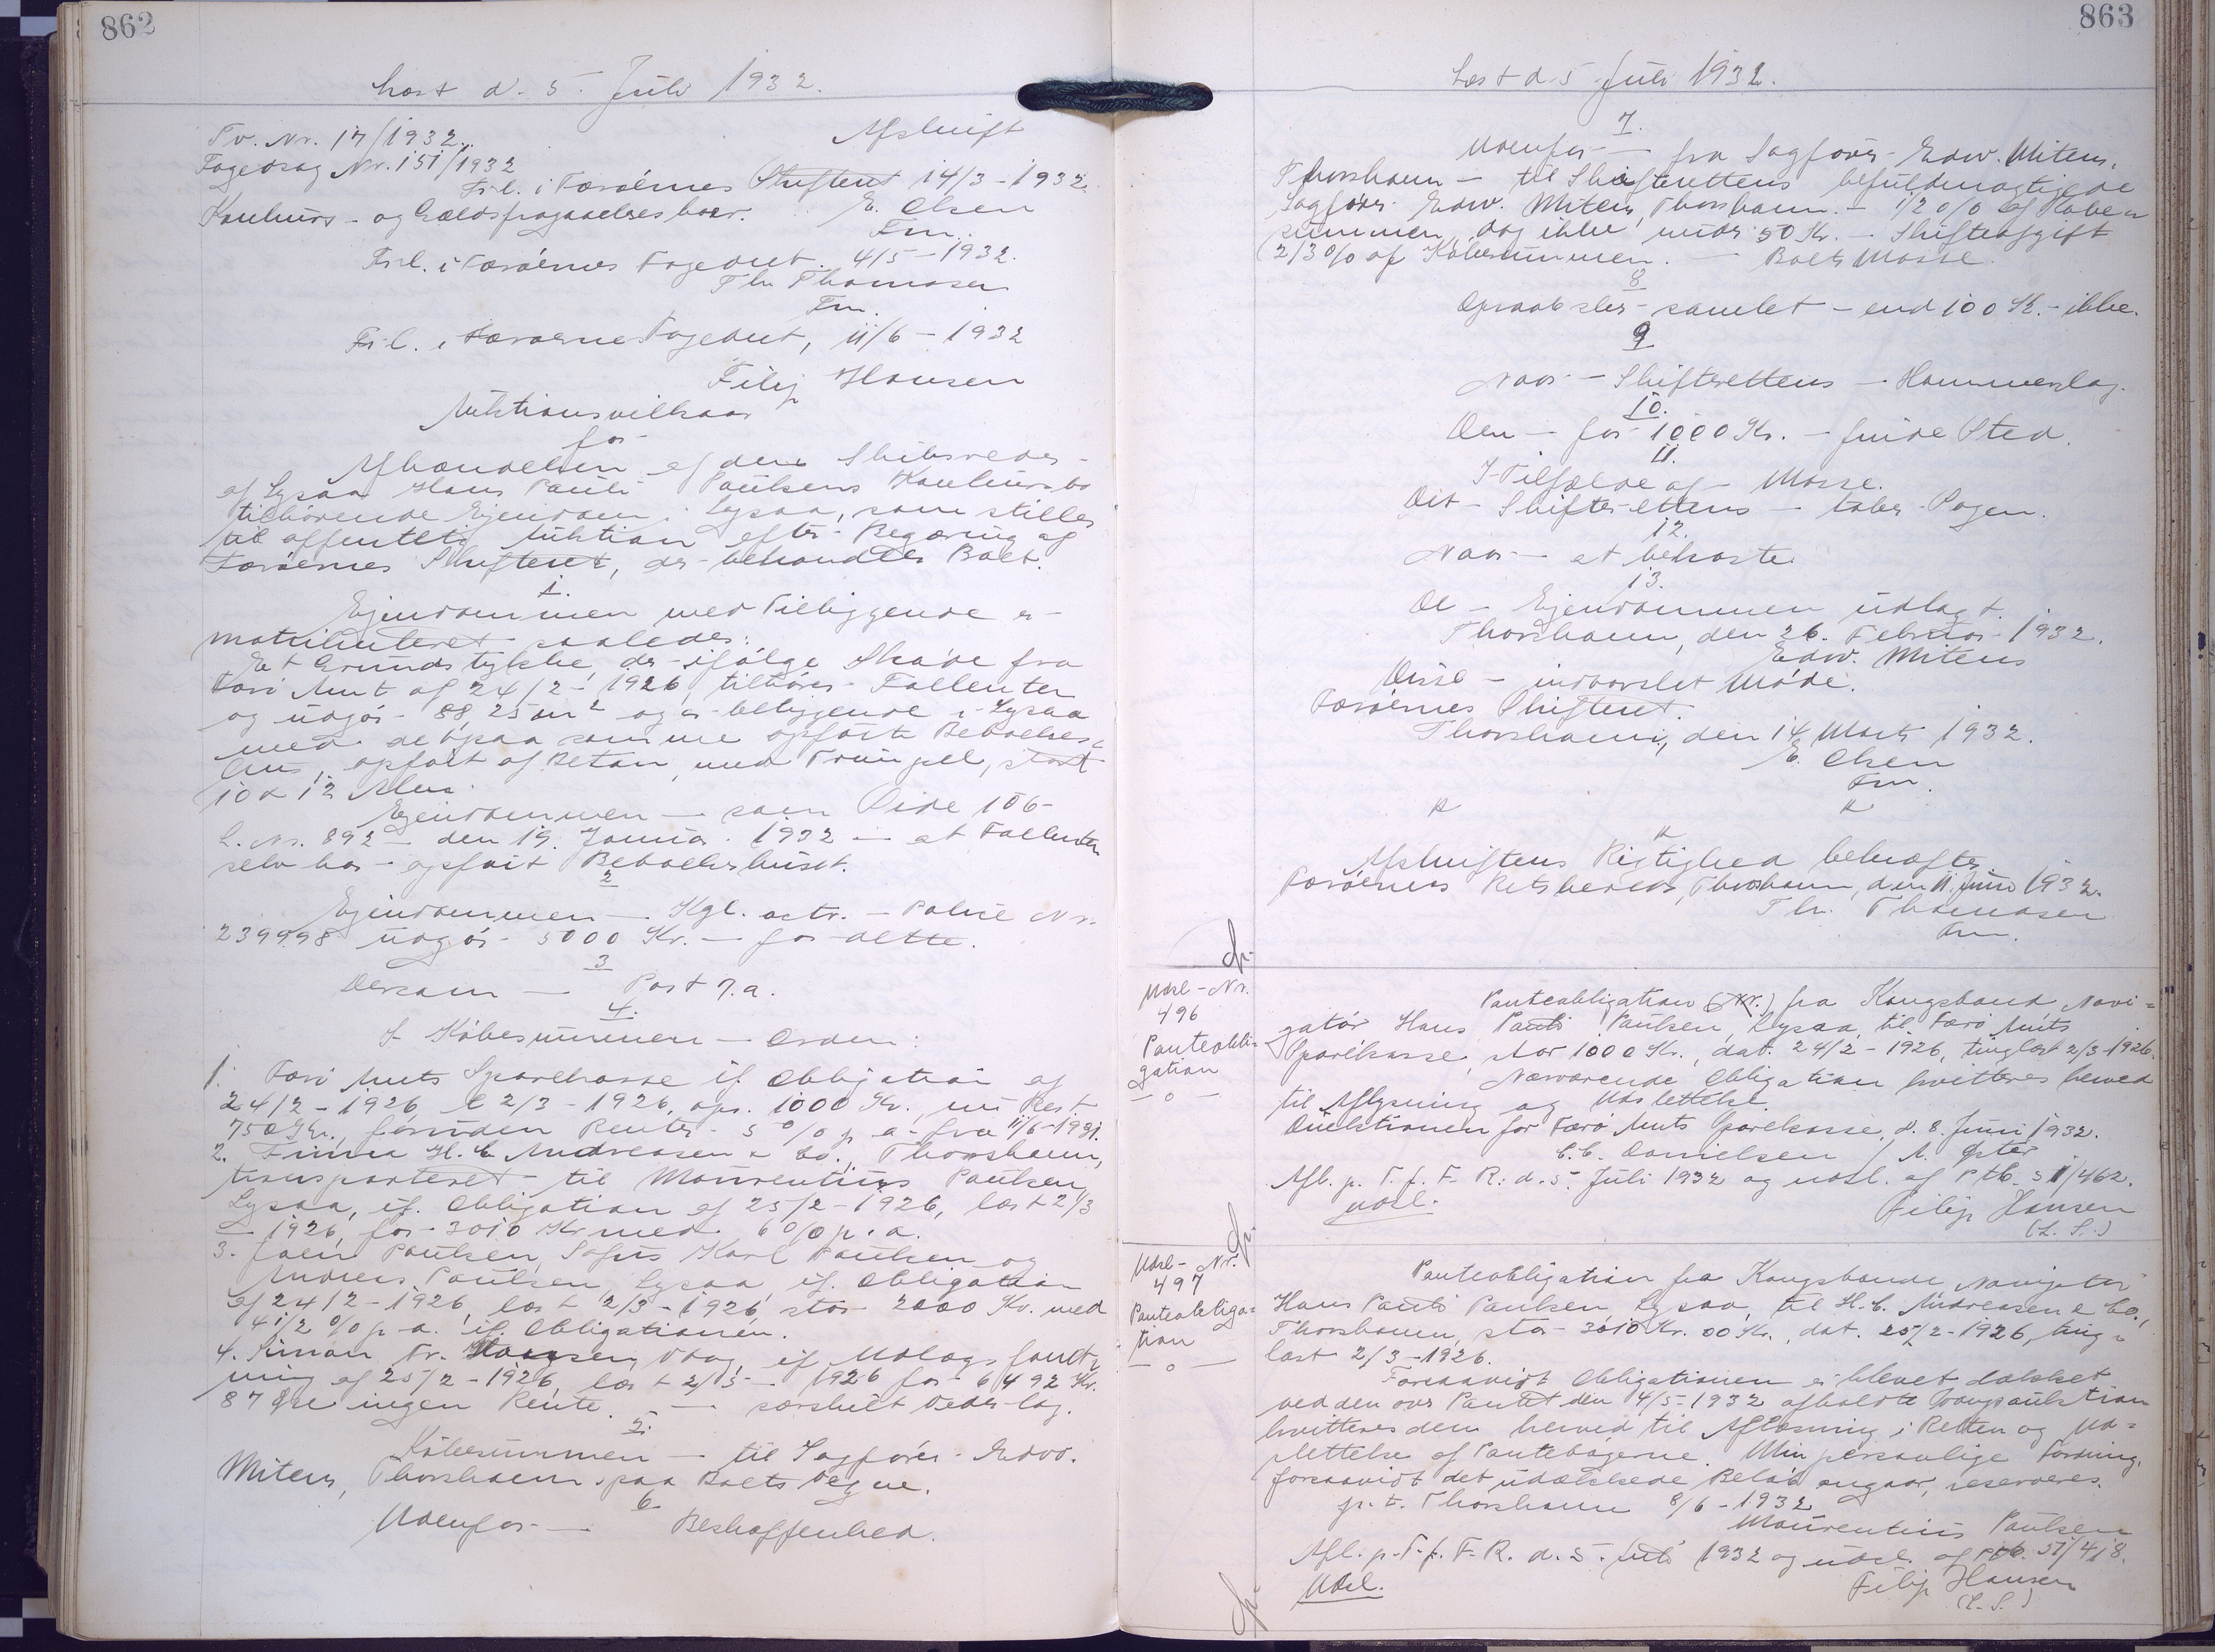 862
Læst d. 5. Juli 1932.
Tv. Nr. 17/1932. Afskrift
Fogedsag Nr. 151/1932
Frl. i Færöernes Skifteret 14/3 - 1932.
Konkurs- og Gældsfragaaelsesboer. E. Olsen
Fm.
Frl. i Færöernes Fogedret. 4/5 - 1932.
Thr. Thomasen
Fm.
Frl. i Færøerne Fogedret, 11/6 - 1932
Filip Hansen
Auktionsvilkaar
for
Afhændelsen af den Skibsreder
af Lopra Hans Pauli Paulsens Konkursbo
tilhörende Ejendom i Lopra, som stilles
til offentlig Auktion efter Begæring af
Færöernes Skifteret, der behandler Boet.
1.
Ejendommen med Tilliggende er
matrikuleret saaledes:
Et Grundstykke, der ifölge Sköde fra
Færö Amt af 24/2 - 1926, tilhörer Fallenten
og udgör 88,25 m² og er beliggende i Lopra
med det paa samme opförte Beboelses-
hus, opfört af Beton, med Trempel, stort
10 x 12 Alen.
Ejendommen — som Side 106-
L. Nr. 892 — den 19. Januar 1932 — at Fallenten
selv har opfört Beboelseshuset.
2
Ejendommen — Kgl. octr. — Police Nr.
239998 udgör 5000 Kr. — for dette.
3
Dersom — Post 7.a.
4.
I Köbesummen — Orden:
1. Færö Amts Sparekasse if. Obligation af
24/2 - 1926, l 2/3 - 1926, opr. 1000 Kr., nu Rest
750 Kr., foruden Renter 5 % p. a. fra 11/6 - 1931.
2. Firma H. C. Andreasen & Co., Thorshavn,
transporteret til Maurentius Paulsen,
Lopra, if. Obligation af 25/2 - 1926, læst 2/3
— 1926, for 3010 Kr med 6 % p. a.
3. Paulsen, Sofus Karl Paulsen og
Andreas Paulsen, Lopra, if. Obligation
af 24/2 - 1926, læst 2/3 - 1926, stor 2000 Kr. med
4 1/2 % p. a. if. Obligationen.
4. Simon Fr. Hansen, Vaag, if. Udlægsforret-
ning af 25/2 - 1926, læst 2/3 - 1926 for 6492 Kr.
87 Øre ingen Rente. — særskilt Vederlag.
5.
Köbesummen — til Sagförer Edw.
Mitens, Thorshavn paa Boets Vegne.
6
Udenfor — Beskaffenhed.
863
Læst d. 5 Juli 1932.
7.
Udenfor — fra Sagförer Edw. Mitens,
Thorshavn — til Skifterettens befuldmægtigede
Sagförer Edw. Mitens, Thorshavn. — 1/2 % af Köbe-
summen, dog ikke under 50 Kr. — Skifteafgift
2/3 % af Köbesummen. — Boets Masse.
8
Opraabstes samlet — end 100 Kr. — ikke.
9
Naar — Skifterettens — Hammerslag.
10.
Den — for 1000 Kr. — finde Sted.
11.
I Tilfælde af — Masse.
Det — Skifterettens — taber Sagen.
12.
Naar — at bekoste.
13.
De — Ejendommen udlagt.
Thorshavn, den 26. Februar 1932.
Edw. Mitens
Disse — indvarslet Möde.
Færöernes Skifteret.
Thorshavn, den 14 Marts 1932.
E. Olsen
Fm.
Afskriftens Rigtighed bekræftes.
Færöernes Retskreds, Thorshavn, den 11. Juni 1932.
Thr. Thomasen
Fm.
Udsl-Nr.
496
Panteobli-
gation
— o —
Panteobligation fra Kongsbonde Navi-
gatör Hans Pauli Paulsen, Lopra, til Færö Amts
Sparekasse, stor 1000 Kr., dat. 24/2 - 1926, tinglæst 2/3 - 1926.
Nærværende Obligation kvitteres herved
til Aflysning og Udslettelse.
Direktionen for Færö Amts Sparekasse, d. 8. Juni 1932.
C. C. Danielsen / A. Øster
Afl. p. T. f. F. R. d. 5. Juli 1932 og udsl. af Ptb. 51/462.
Udsl. Filip Hansen
(L. S.)
Udsl- Nr.
497
Panteobliga-
tion
— o —
Panteobligation fra Kongsbonde Navigatör
Hans Pauli Paulsen, Lopra, til H. C. Andreasen & Co.,
Thorshavn, stor 3010 Kr. 00 Kr., dat. 25/2 - 1926, ting-
læst 2/3 - 1926.
Forsaavidt Obligationen er blevet dækket
ved den over Pantet den 14/5 - 1932 afholdte Tvangsauktion
kvitteres den herved til Aflæsning i Retten og Ud-
slettelse af Pantebøgerne. Min personlige Fordring,
forsaavidt det udækkede Belöb angaar, reserveres.
p. t. Thorshavn 8/6 - 1932
Maurentius Paulsen
Afl. p. T. f. F. R. d. 5. Juli 1932 og udsl. af Ptb. 51/418.
Udsl. Filip Hansen
(L. S.)